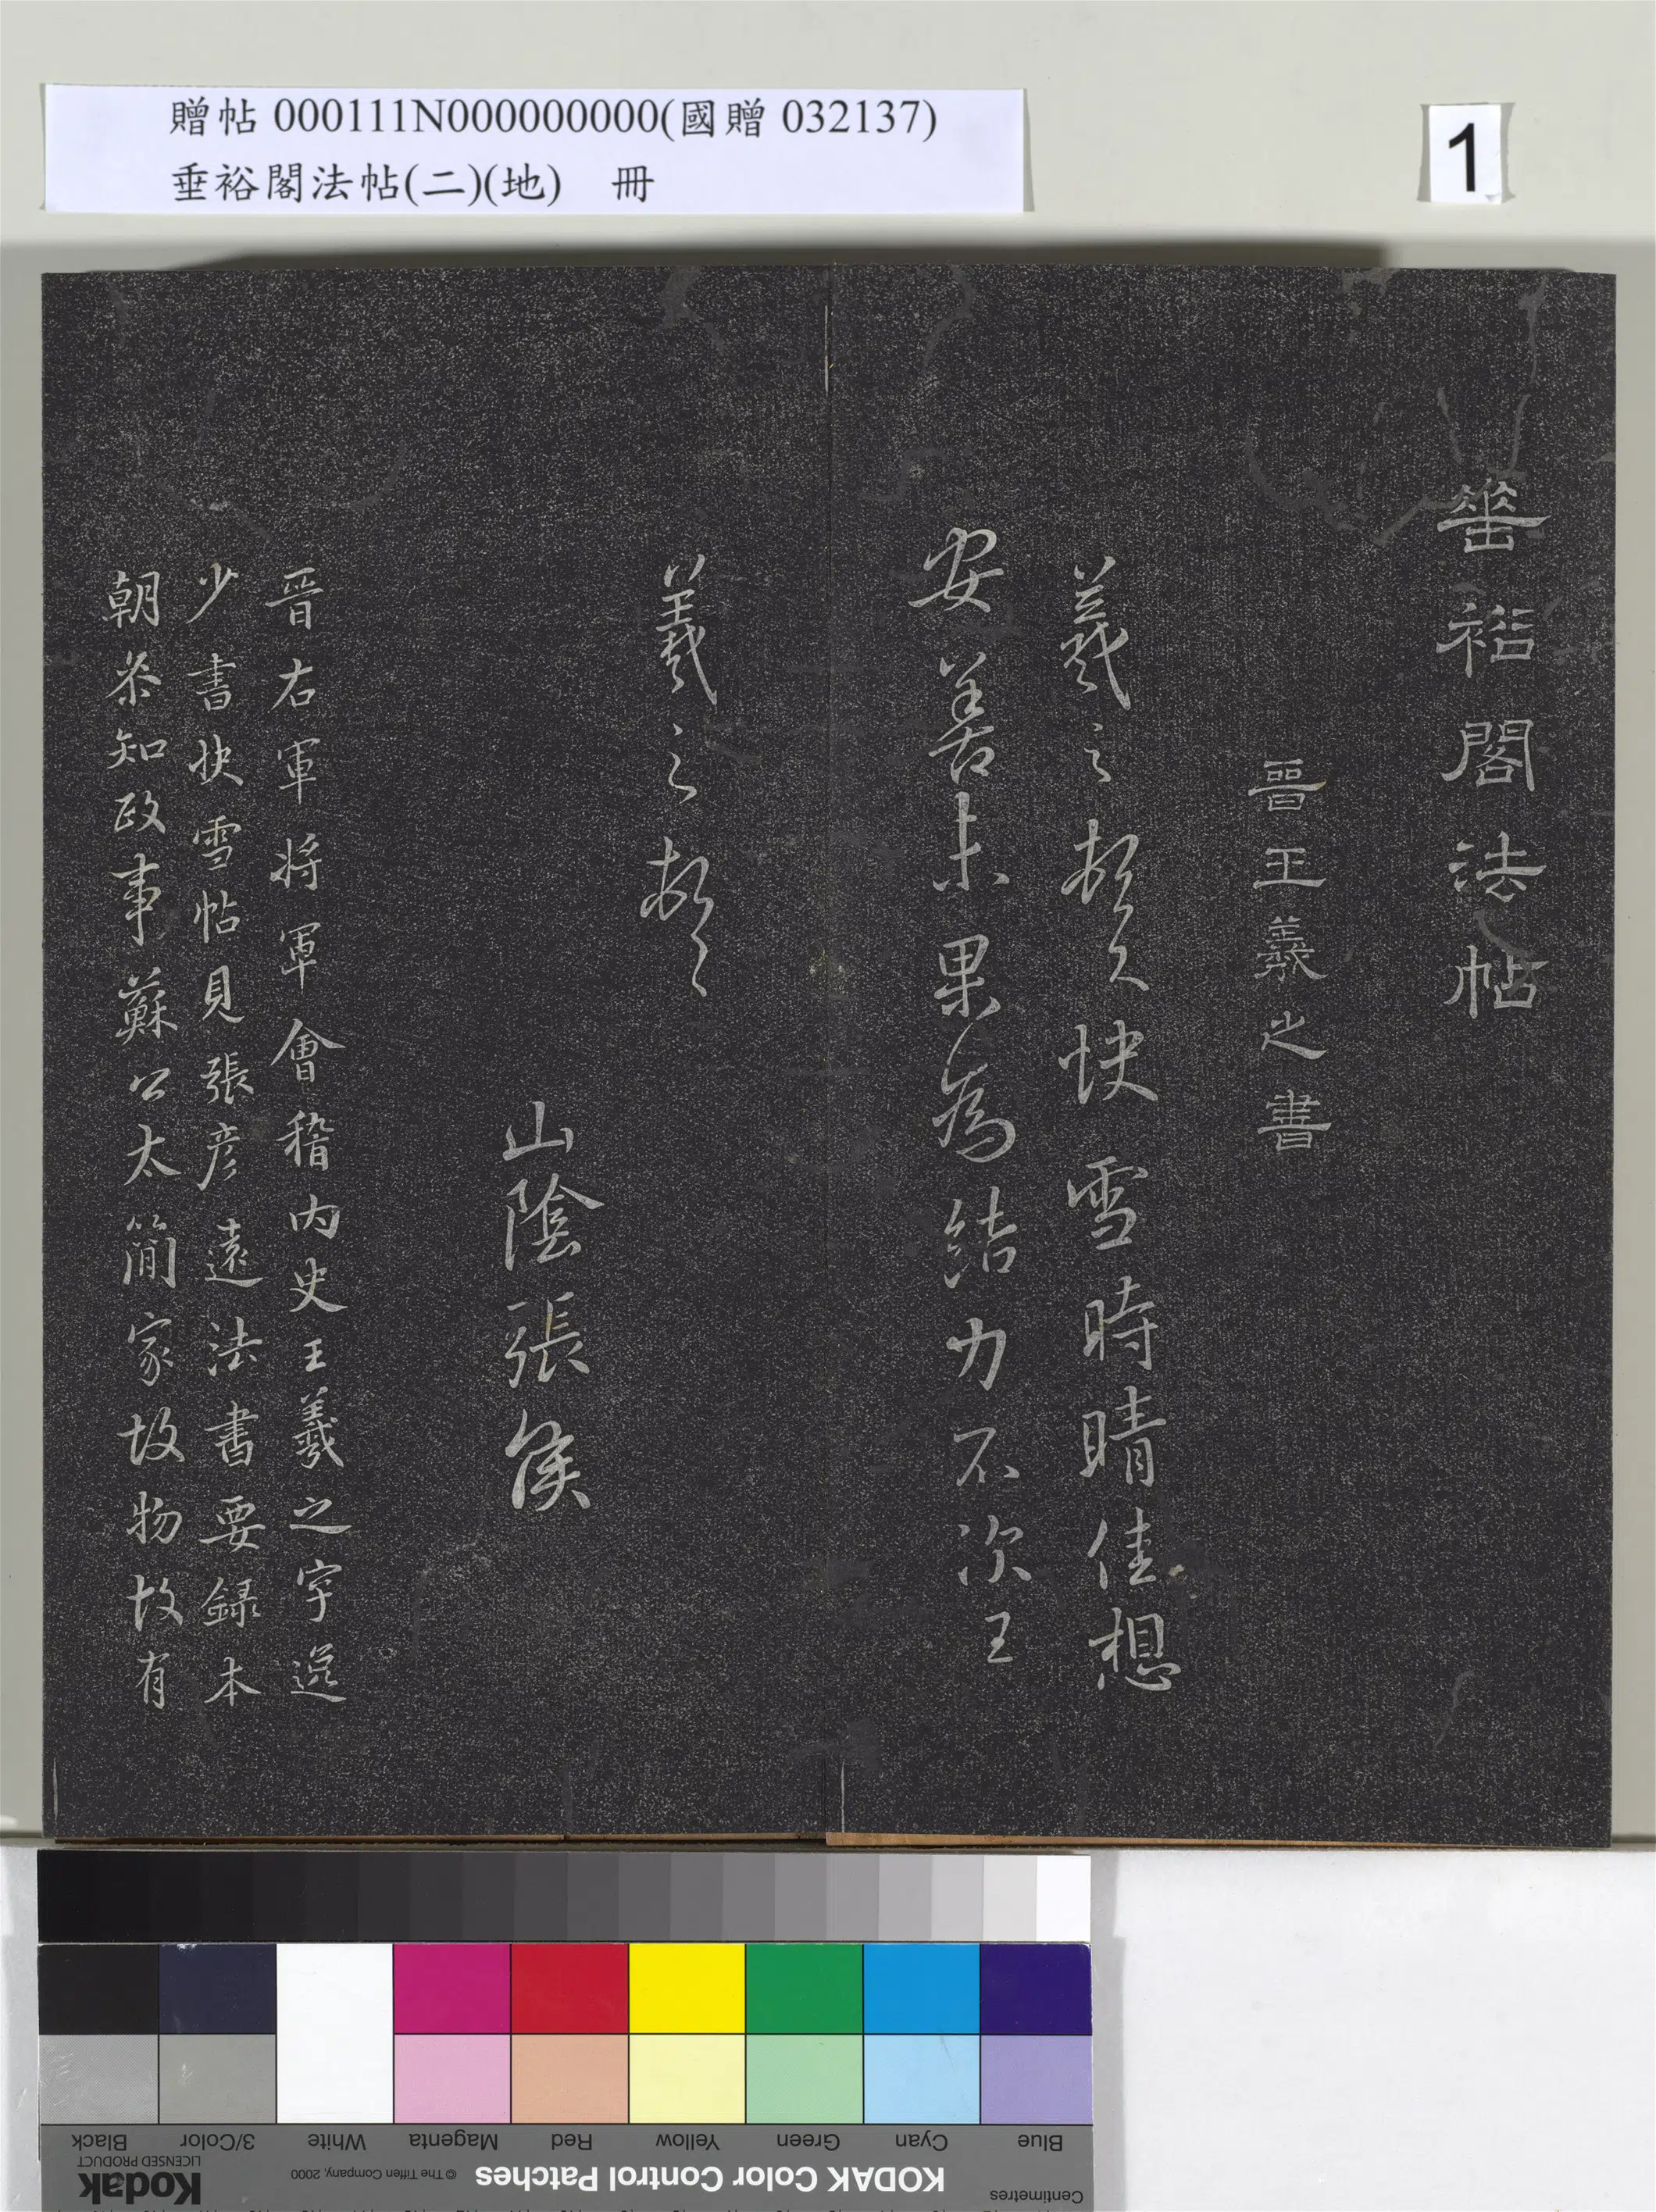 贈帖 000111N000000000(國贈 032137)
垂裕閣法帖(二)(地) 冊
1
垂裕閣法帖
晉王羲之書
羲之頓首快雪時晴佳想
安善未果為結力不次王
羲之頓首
山陰張侯
晉右軍將軍會稽內史王羲之字逸
少書快雪帖見張彥遠法書要錄本
朝參知政事蘇公太簡家故物故有
Black
3/Color
White
Magenta
Red
Yellow
Green
Cyan
Blue
Kodak
LICENSED PRODUCT
© The Tiffen Company, 2000
KODAK Color Control Patches
Centimetres